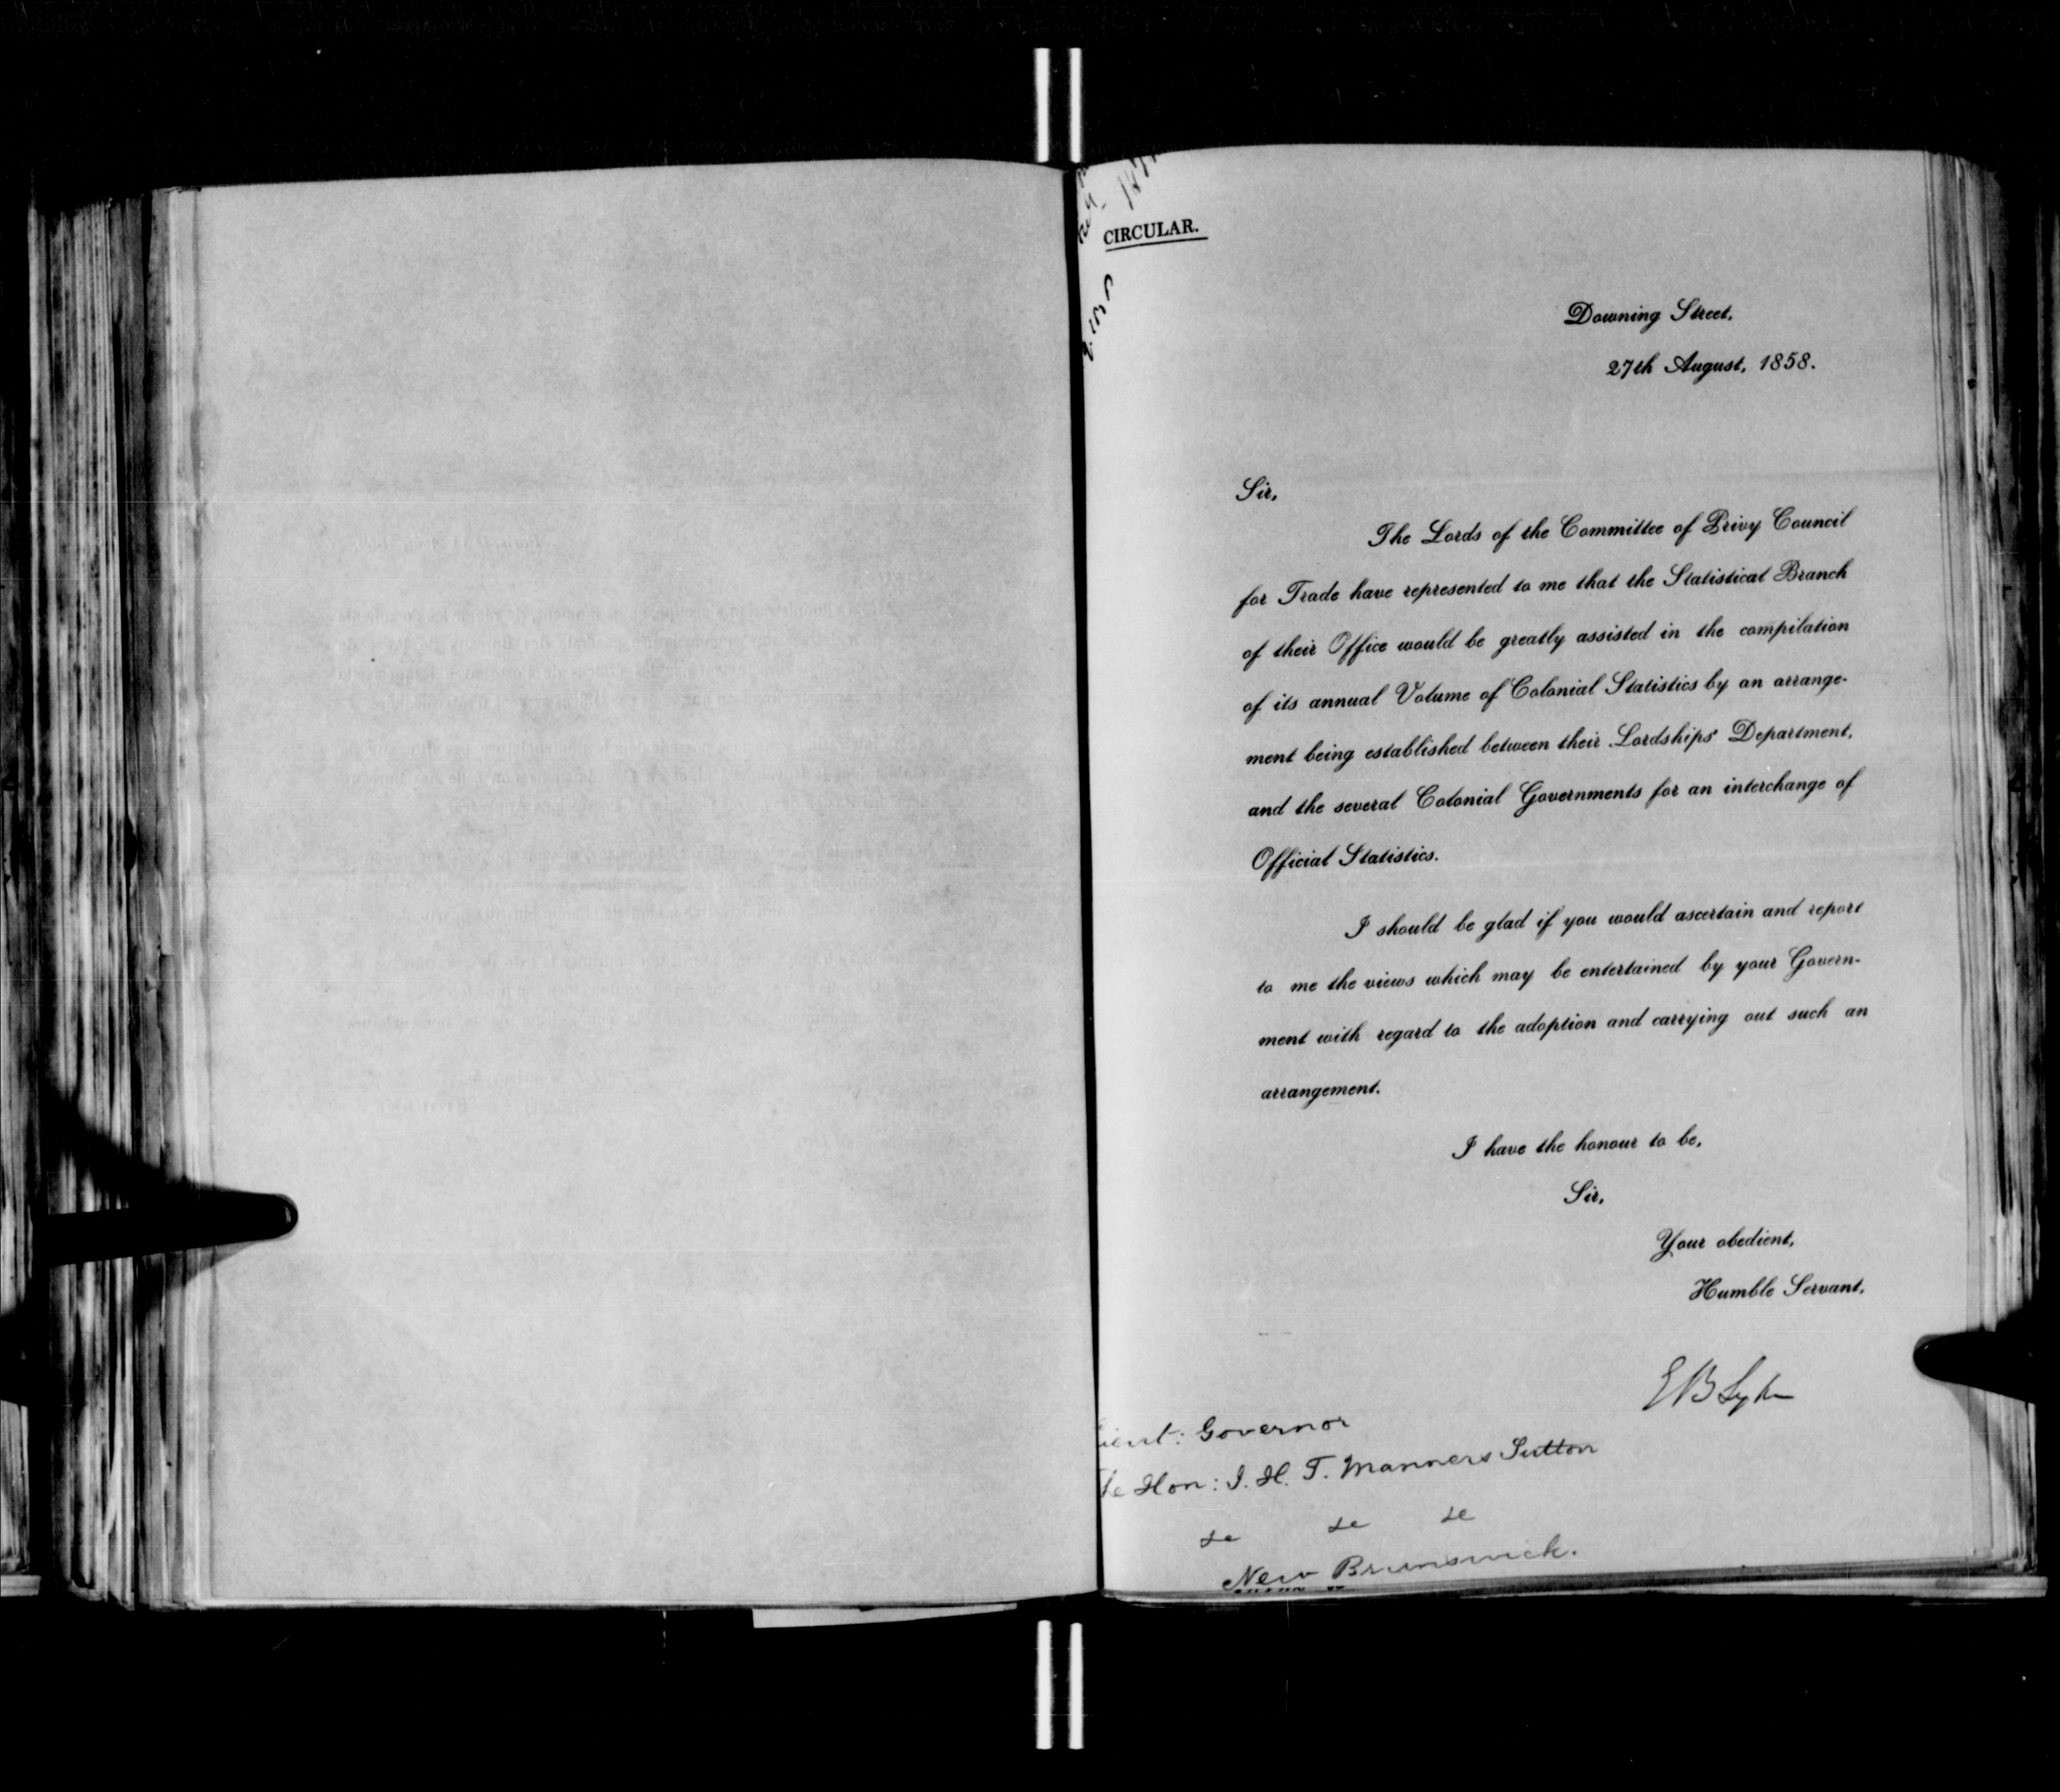 CIRCULAR.
Downing Street,
27th August, 1858.
Sir,
The Lords of the Committee of Privy Council
for Trade have represented to me that the Statistical Branch
of their Office would be greatly assisted in the compilation
of its annual Volume of Colonial Statistics by an arrange-
ment being established between their Lordships' Department,
and the several Colonial Governments for an interchange of
Official Statistics.
I should be glad if you would ascertain and report
to me the views which may be entertained by your Govern-
ment with regard to the adoption and carrying out such an
arrangement.
I have the honour to be,
Sir,
Your obedient,
Humble Servant,
E B Lytton
Governor
Hon: J. H. T. Manners Sutton
&c &c &c
New Brunswick.